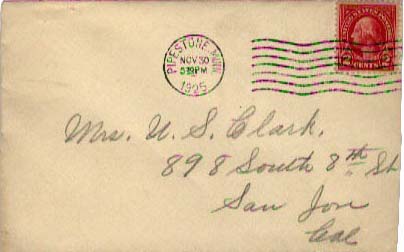 PIPESTONE, MINN.
NOV 30
5 30 PM
1925
UNITED STATES POSTAGE
2 CENTS 2
Mrs. U. S. Clark,
898 South 8th St
San Jose
Cal